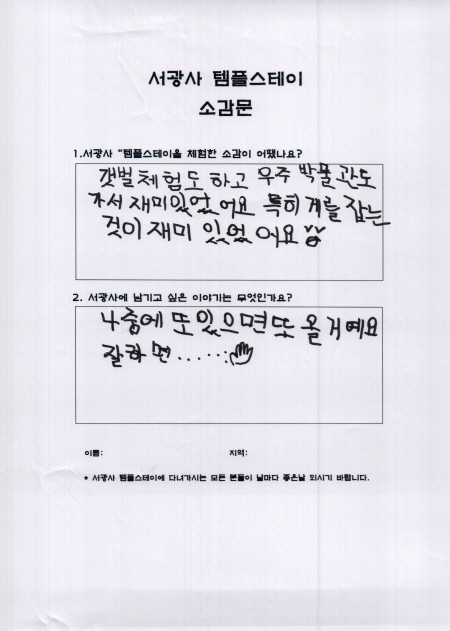 서광사 템플스테이
소감문
1.서광사 "템플스테이을 체험한 소감이 어땠나요?
갯벌체험도 하고 우주 박물관도
가서 재미있었어요 특히 게를 잡는
것이 재미 있었어요
2. 서광사에 남기고 싶은 이야기는 무엇인가요?
나중에 또있으면 또 올거예요
잘하면......
이름: 지역:
* 서광사 템플스테이에 다녀가시는 모든 분들이 날마다 좋은날 되시기 바랍니다.